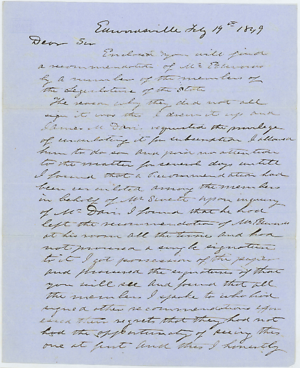 Edwardsville Feby 19th 1849
Dear Sir
Enclosed you will find
a recommendation of Mr
by a number of the members of
the Legislature of the State
The reason why they did not all
sign it was this I drew it up and
James M. Davis requested the privilege
of circulating it for subscription I allowed
him to do so and paid no attention
to the matter for several days until
I found that a recommendation had
been circulated among the members
in behalf of Mr Sweet upon inquiry
of Mr Davis I found that he had
left the recommendation of Mr
at his room all the time and had
not procured a single signature
to it I got possession of the paper
and procured the signatures that
you will see and found that all
the members I spoke to who had
signed other recommendations
their regrets that they had not
had the opportunity of seeing this
one at first and this I honestly